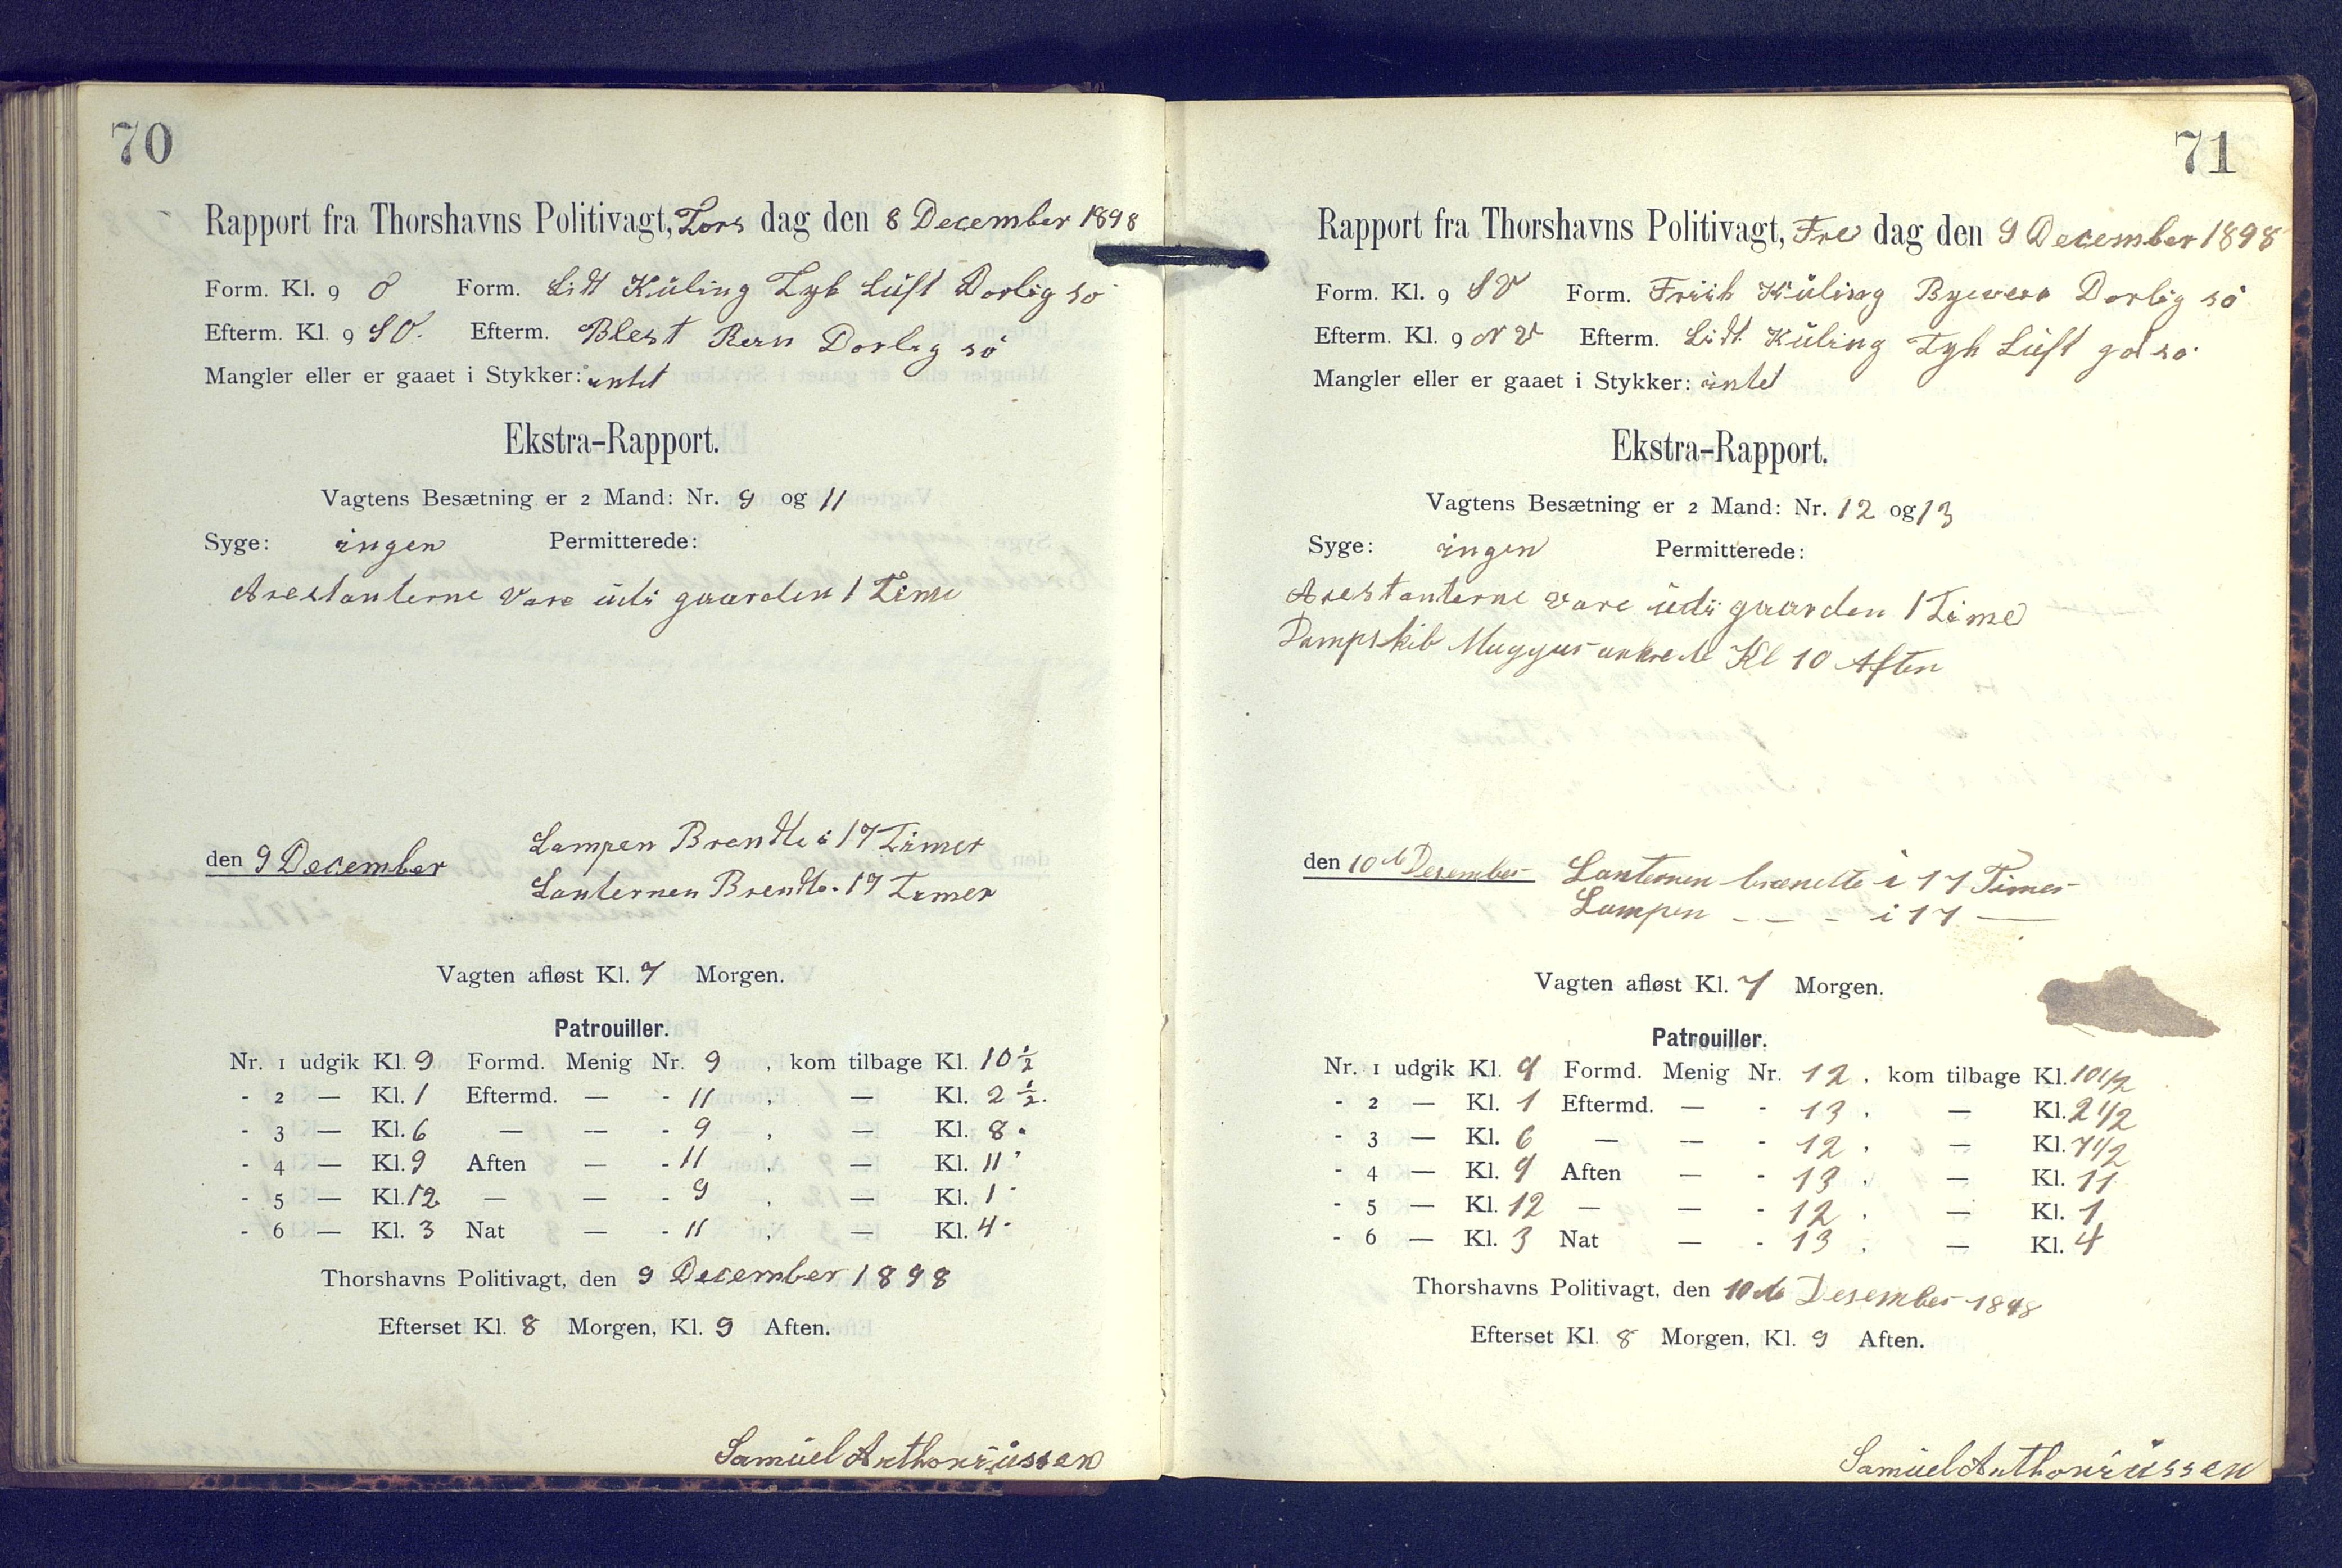 70
Rapport fra Thorshavns Politivagt, Tors dag den 8 December 1898
Form. Kl. 9 O Form. Lidt Küling Tyk Lüft Dorlig sö
Efterm. Kl. 9 SO. Efterm. Blest Rein Dorlig sö
Mangler eller er gaaet i Stykker: intet
Ekstra-Rapport.
Vagtens Besætning er 2 Mand: Nr. 9 og 11
Syge: ingen Permitterede:
Arestanterne vare üdi gaarden 1 Time
den 9 December
Lampen Brendte i 17 Timer
Lanternen Brendte. 17 Timer
Vagten afløst Kl. 7 Morgen.
Patrouiller.
Nr. 1 udgik Kl. 9 Formd. Menig Nr. 9 , kom tilbage Kl. 10 ½
- 2 — Kl. 1 Eftermd. — - 11 , — Kl. 2 ½.
- 3 — Kl. 6 — — - 9 , — Kl. 8 -
- 4 — Kl. 9 Aften — - 11 , — Kl. 11 -
- 5 — Kl. 12 — — - 9 , — Kl. 1 -
- 6 — Kl. 3 Nat — - 11 , — Kl. 4 -
Thorshavns Politivagt, den 9 December 1898
Efterset Kl. 8 Morgen, Kl. 9 Aften.
Samüel Anthoniüssen
71
Rapport fra Thorshavns Politivagt, Fre dag den 9 December 1898
Form. Kl. 9 SV Form. Friik Küling Byeveer Dorlig sö
Efterm. Kl. 9 NV Efterm. Lidt Küling Tyk Lüft god sö
Mangler eller er gaaet i Stykker: intet
Ekstra-Rapport.
Vagtens Besætning er 2 Mand: Nr. 12 og 13
Syge: ingen Permitterede:
Arestanterne vare üdi gaarden 1 Time
Dampskib Muggur ankrede Kl 10 Aften
den 10de Desember Lanternen brændte i 17 Timer
Lampen — — - i 17 —
Vagten afløst Kl. 7 Morgen.
Patrouiller.
Nr. 1 udgik Kl. 9 Formd. Menig Nr. 12 , kom tilbage Kl. 10 1/2
- 2 — Kl. 1 Eftermd. — - 13 , — Kl. 2 1/2
- 3 — Kl. 6 — — - 12 , — Kl. 7 1/2
- 4 — Kl. 9 Aften — - 13 , — Kl. 11
- 5 — Kl. 12 — — - 12 , — Kl. 1
- 6 — Kl. 3 Nat — - 13 , — Kl. 4
Thorshavns Politivagt, den 10de Desember 1898
Efterset Kl. 8 Morgen, Kl. 9 Aften.
Samüel Anthoniüssen